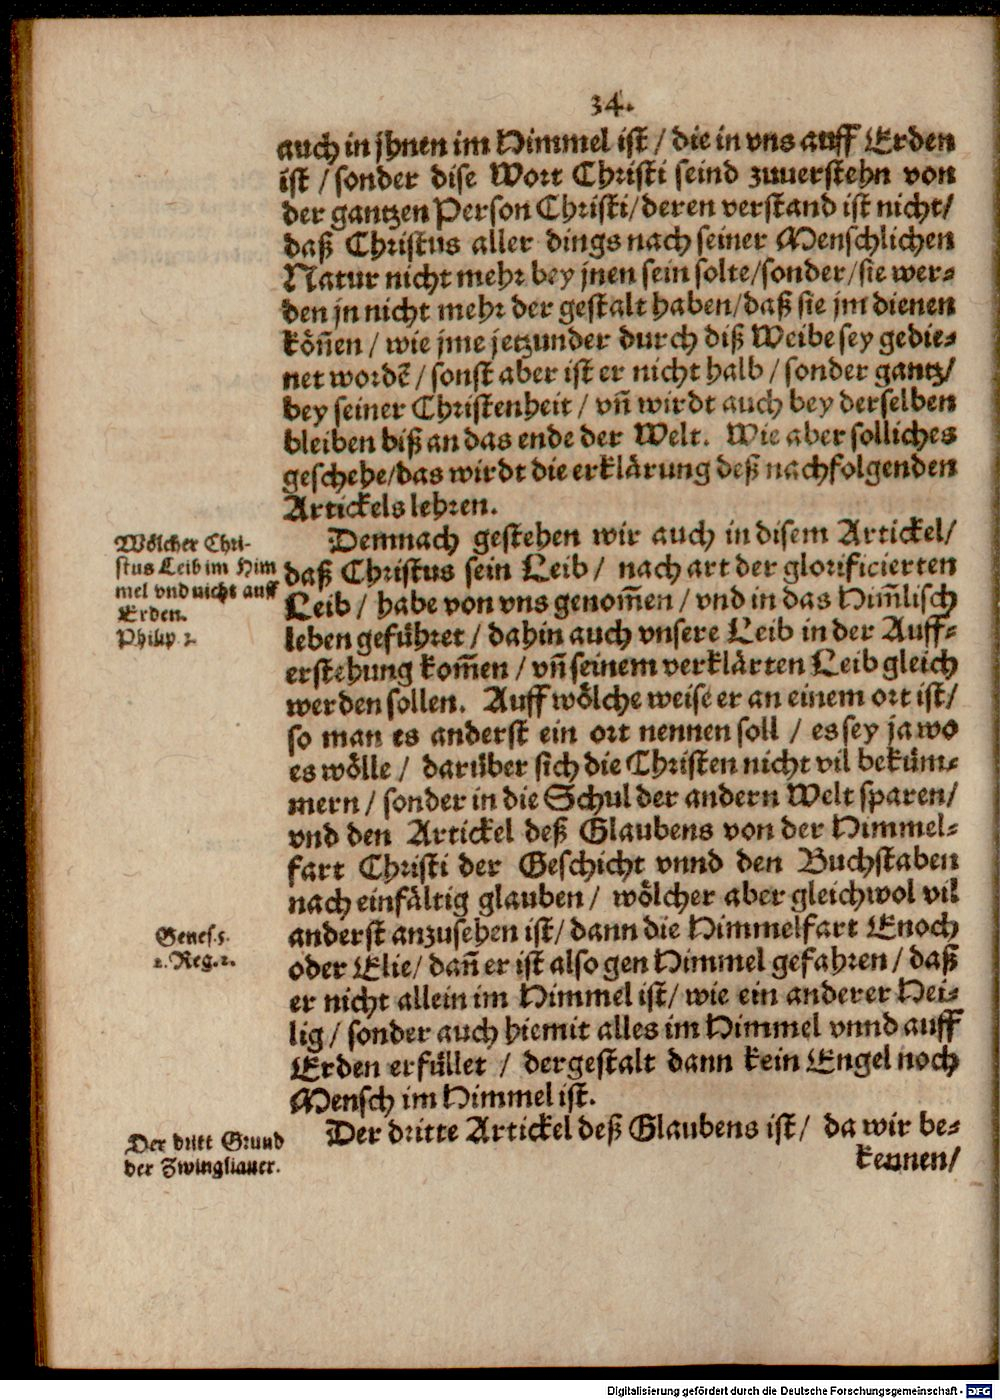 34.
auch in jhnen im Himmel ist / die in vns auff Erden
ist / sonder dise Wort Christi seind zuuerstehn von
der gantzen Person Christi/ deren verstand ist nicht/
daß Christus aller dings nach seiner Menschlichen
Natur nicht mehr bey jnen sein solte/sonder/sie wer-
den jn nicht mehr der gestalt haben/daß sie jm dienen
köñen / wie jme jetzunder durch diß Weibe sey gedie-
net wordẽ / sonst aber ist er nicht halb / sonder gantz/
bey seiner Christenheit / vñ wirdt auch bey derselben
bleiben biß an das ende der Welt. Wie aber solliches
geschehe/das wirdt die erklärung deß nachfolgenden
Artickels lehren.
Demnach gestehen wir auch in disem Artickel/
daß Christus sein Leib / nach art der glorificierten
Leib / habe von vns genom̃en / vnd in das Him̃lisch
leben geführet / dahin auch vnsere Leib in der Auff-
erstehung kom̃en / vñ seinem verklärten Leib gleich
werden sollen. Auff wölche weise er an einem ort ist/
so man es anderst ein ort nennen soll / es sey ja wo
es wölle / darüber sich die Christen nicht vil beküm-
mern / sonder in die Schul der andern Welt sparen/
vnd den Artickel deß Glaubens von der Himmel-
fart Christi der Geschicht vnnd den Buchstaben
nach einfältig glauben / wölcher aber gleichwol vil
anderst anzusehen ist/ dann die Himmelfart Enoch
oder Elie/ dañ er ist also gen Himmel gefahren / daß
er nicht allein im Himmel ist/ wie ein anderer Hei-
lig / sonder auch hiemit alles im Himmel vnnd auff
Erden erfüllet / dergestalt dann kein Engel noch
Mensch im Himmel ist.
Der dritte Artickel deß Glaubens ist/ da wir be-
kennen/
Wölcher Chri-
stus Leib im Him
mel vnd nicht auff
Erden.
Philip. 3.
Genes. 5.
2. Reg. 2.
Der dritt Grund
der Zwinglianer.
Digitalisierung gefördert durch die Deutsche Forschungsgemeinschaft - DFG